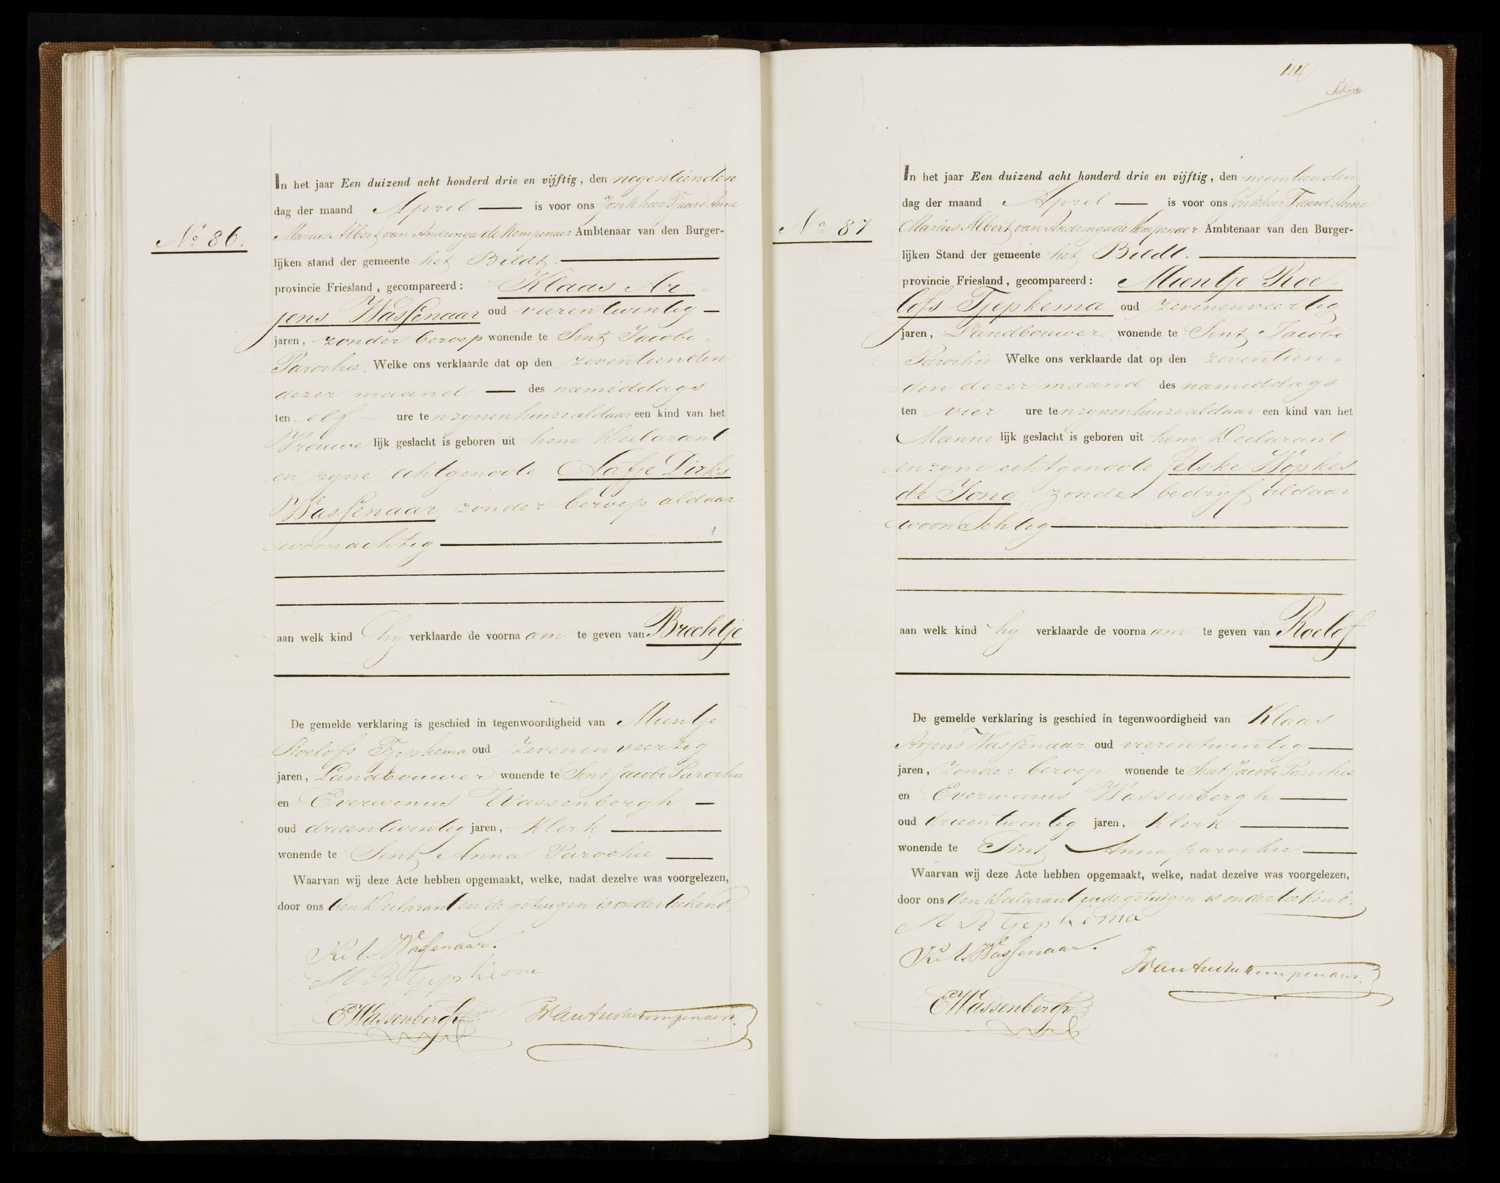 No 86.
In het jaar Een duizend acht honderd drie en vijftig, den negentienden
dag der maand April — is voor ons Jonkheer Tjaard Anne
Marius Albert van Andringa de Kempenaer Ambtenaar van den Burger-
lijken stand der gemeente het Bildt.
provincie Friesland, gecompareerd: Klaas Ar
jens Wassenaar oud vierentwintig —
jaren, zonder beroep wonende te Sint Jacobi
Parochie. Welke ons verklaarde dat op den zeventienden
dezer maand — des namiddags
ten elf ure te nzynen huize aldaar een kind van het
Vrouwe lijk geslacht is geboren uit hem Declarant
en zyne echtgenoote Aafje Dirks
Wassenaar zonder beroep aldaar
woonachtig
aan welk kind hy verklaarde de voorna am te geven van Brechtje
De gemelde verklaring is geschied in tegenwoordigheid van Mientje
Roelofs Tjepkema oud zevenenveertig
jaren, Landbouwer wonende te Sint Jacobi Parochie
en Everwinus Wassenbergh —
oud drieentwintig jaren, Klerk
wonende te Sint Anna Parochie
Waarvan wij deze Acte hebben opgemaakt, welke, nadat dezelve was voorgelezen,
door ons den Declarant en de getuigen is onderteekend.
Wassenaar.
M R Tjepkema
EWassenbergh
No 87
In het jaar Een duizend acht honderd drie en vijftig, den negentienden
dag der maand April — is voor ons Jonkheer Tjaard Anne
Marius Albert van Andringa de Kempenaer Ambtenaar van den Burger-
lijken Stand der gemeente het Bildt.
provincie Friesland, gecompareerd: Mientje Roe
lofs Tjepkema oud zevenenveertig
jaren, Landbouwer wonende te Sint Jacobi
Parochie Welke ons verklaarde dat op den zeventien
den dezer maand des namiddags
ten vier ure te nzynen huize aldaar een kind van het
Manne lijk geslacht is geboren uit hem Declarant
en zyne echtgenoote Jetske Wopkes
de Jong zonder bedryf aldaar
woonachtig
aan welk kind hy verklaarde de voorna am te geven van Roelof
De gemelde verklaring is geschied in tegenwoordigheid van Klaas
Arjens Wassenaar oud vierentwintig
jaren, zonder beroep wonende te Sint Jacobi Parochie
en Everwinus Wassenbergh
oud drieentwintig jaren, Klerk
wonende te Sint Annaparochie
Waarvan wij deze Acte hebben opgemaakt, welke, nadat dezelve was voorgelezen,
door ons den Declarant en de getuigen is onderteekend.
M R Tjepkema
Wassenaar.
EWassenbergh